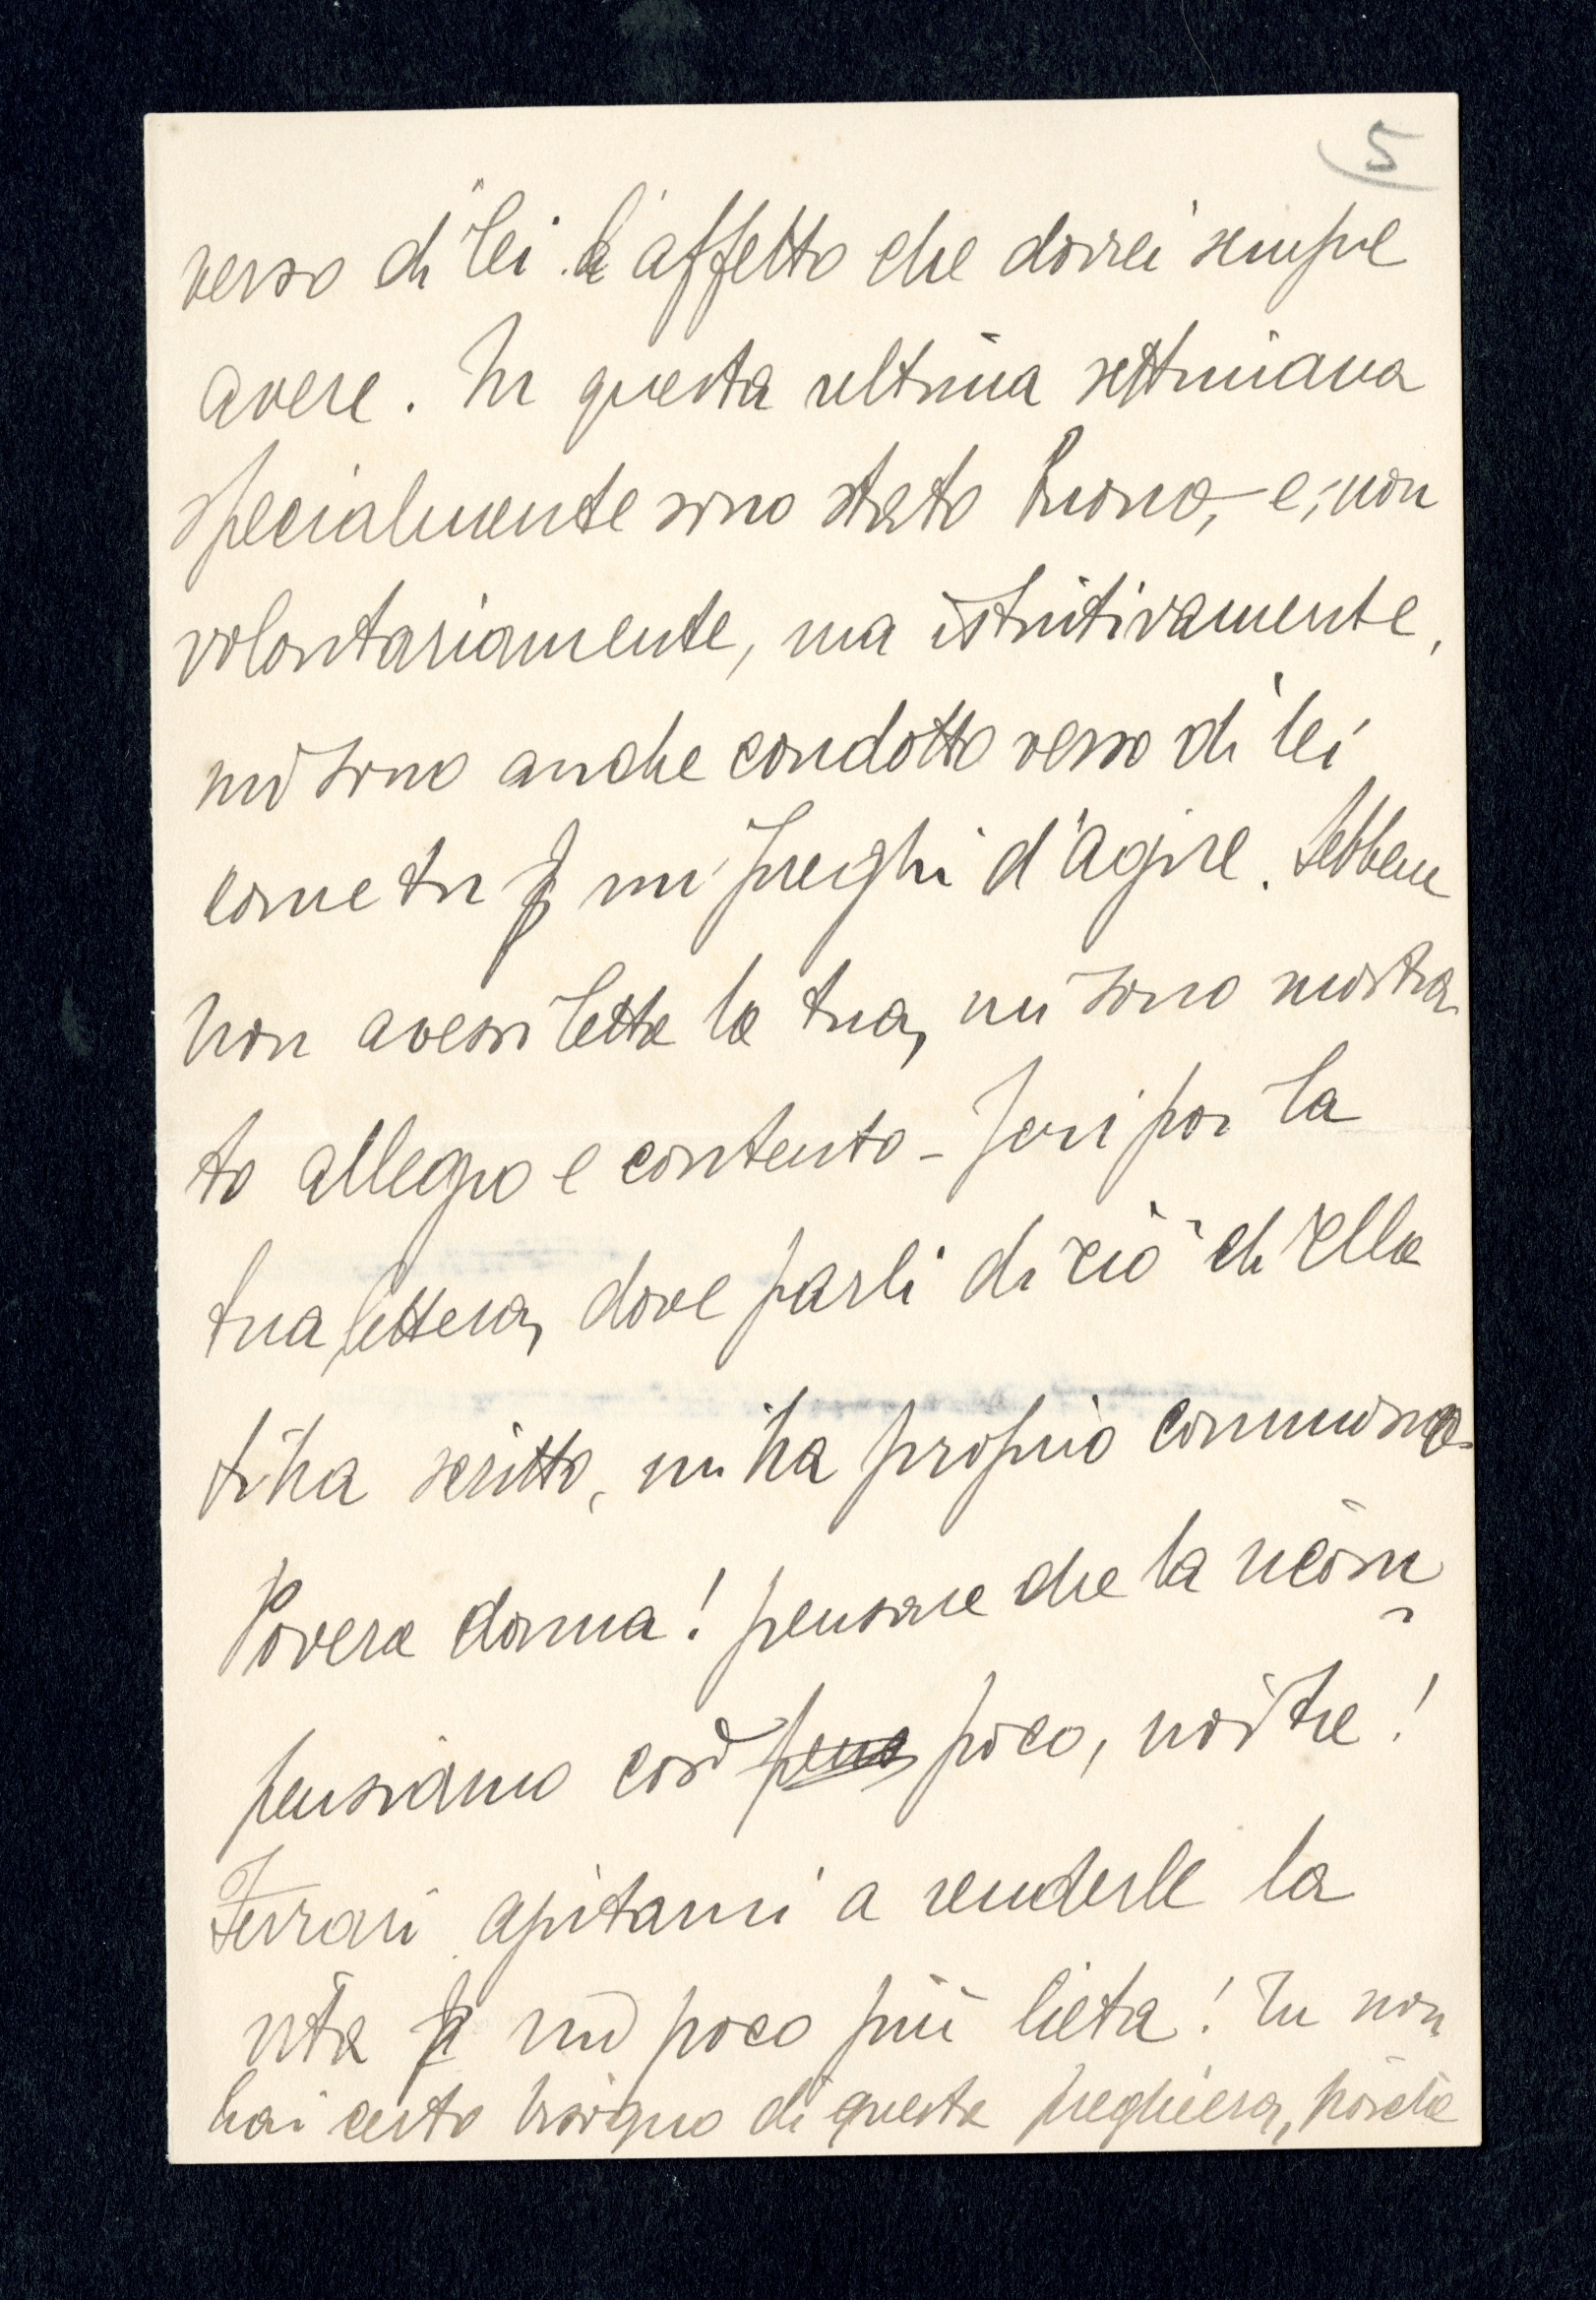 5
verso di lei l'affetto che dovrei sempre
avere. In questa ultima settimana
specialmente sono stato buono, e, non
volontariamente, ma istintivamente,
mi sono anche condotto verso di lei
come tu mi preghi d'agire. Sebbene
non avessi letta la tua, mi sono mostra-
to allegro e contento - Ieri poi la
tua lettera, dove parli di ciò ch'Ella
ti ha scritto, mi ha proprio commosso.
Povera donna! pensare che la
pensiamo così pens poco, noi tre!
Ferrari ajutami a renderle la
vita un poco più lieta! Tu non
hai certo bisogno di questa preghiera, poichè